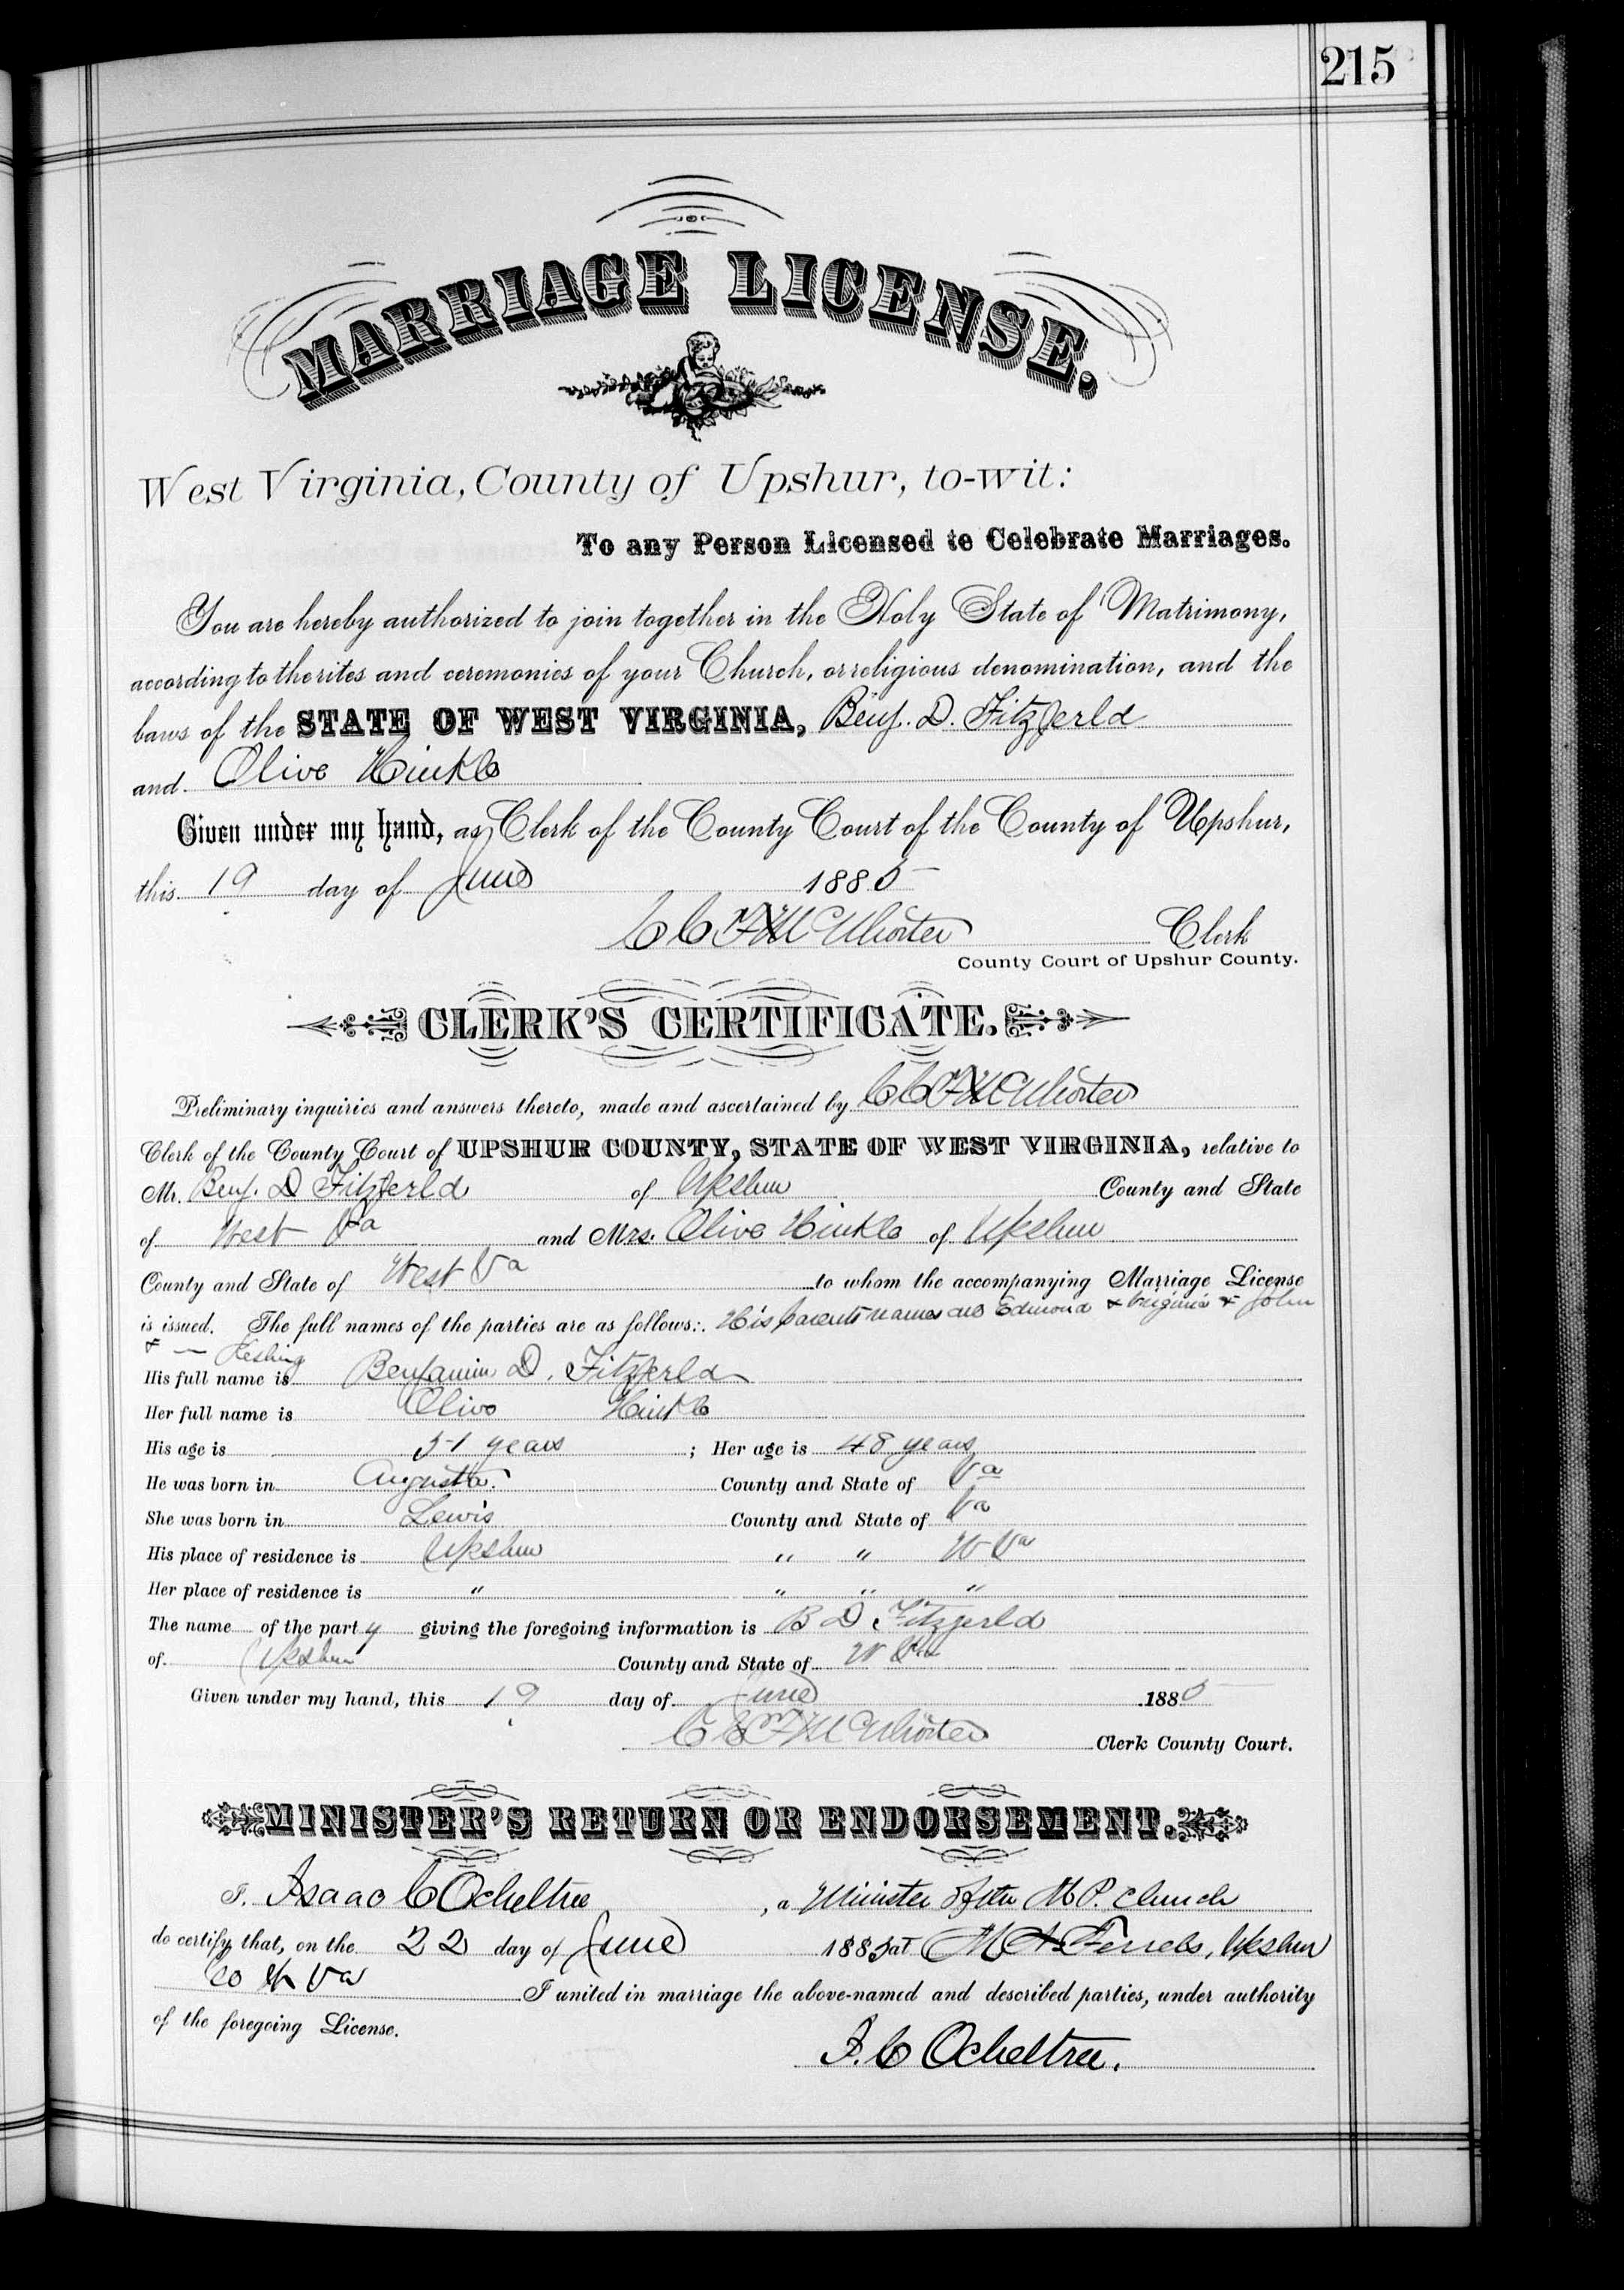 215
MARRIAGE LICENSE.
West Virginia, County of Upshur, to-wit:
To any Person Licensed to Celebrate Marriages.
You are hereby authorized to join together in the Holy State of Matrimony,
according to the rites and ceremonies of your Church, or religious denomination, and the
laws of the STATE OF WEST VIRGINIA, Benj. D. Fitzgerld
and Olive Hinkle
Given under my hand, as Clerk of the County Court of the County of Upshur,
this 19 day of June 1885
McWhorter Clerk
County Court of Upshur County.
CLERK'S CERTIFICATE.
Preliminary inquiries and answers thereto, made and ascertained by McWhorter
Clerk of the County Court of UPSHUR COUNTY, STATE OF WEST VIRGINIA, relative to
Mr. Benj. D Fitzgerld of Upshur County and State
of West Va and Mrs. Olive Hinkle of Upshur
County and State of West Va to whom the accompanying Marriage License
is issued. The full names of the parties are as follows: His parents names are Edmond & Virginia & John
& —
His full name is Benjamin D. Fitzgerld
Her full name is Olive Hinkle
His age is 51 years ; Her age is 48 years
He was born in Augusta County and State of Va
She was born in Lewis County and State of Va
His place of residence is Upshur " " W Va
Her place of residence is " " " "
The name of the party giving the foregoing information is B D Fitzgerld
of Upshur County and State of W Va
Given under my hand, this 19 day of June 1885
McWhorter Clerk County Court.
MINISTER'S RETURN OR ENDORSEMENT.
I, Isaac C Ocheltree , a Minister of the M.P. church
do certify that, on the 22 day of June 1885 at Upshur
Co W Va I united in marriage the above-named and described parties, under authority
of the foregoing License.
I. C Ocheltree.